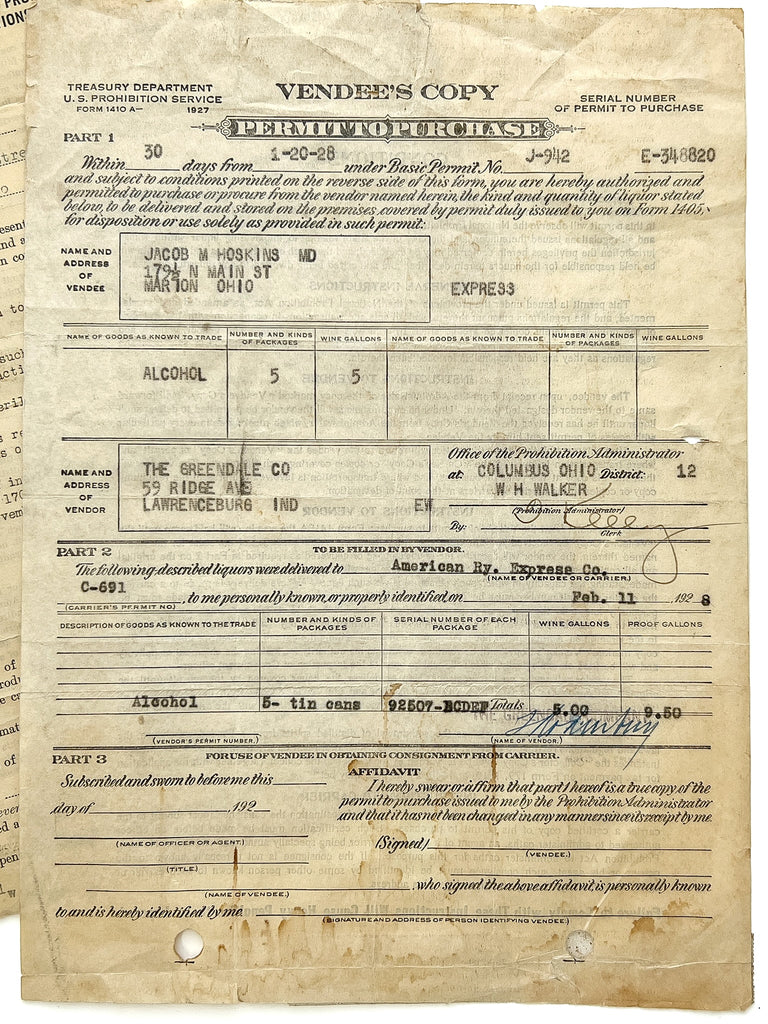 VENDEE'S COPY
TREASURY DEPARTMENT
U.S. PROHIBITION SERVICE
FORM 1410 A— 1927
SERIAL NUMBER
OF PERMIT TO PURCHASE
PERMIT TO PURCHASE
PART 1
Within 30 days from 1-20-28 under Basic Permit No. J-942 E-348820
and subject to conditions printed on the reverse side of this form, you are hereby authorized and
permitted to purchase or procure from the vendor named herein, the kind and quantity of liquor stated
below, to be delivered and stored on the premises covered by permit duly issued to you on Form 1405,
for disposition or use solely as provided in such permit:
NAME AND
ADDRESS
OF
VENDEE
JACOB M HOSKINS MD
179½ N MAIN ST
MARION OHIO
EXPRESS
NAME OF GOODS AS KNOWN TO TRADE NUMBER AND KINDS OF PACKAGES WINE GALLONS NAME OF GOODS AS KNOWN TO TRADE NUMBER AND KINDS OF PACKAGES WINE GALLONS
ALCOHOL 5 5
NAME AND
ADDRESS
OF
VENDOR
THE GREENDALE CO
59 RIDGE AVE
LAWRENCEBURG IND EW
Office of the Prohibition Administrator
at COLUMBUS OHIO District: 12
W H WALKER
(Prohibition Administrator)
By:
Clerk
PART 2 TO BE FILLED IN BY VENDOR.
The following-described liquors were delivered to American Ry. Express Co.
(NAME OF VENDEE OR CARRIER.)
C-691 , to me personally known, or properly identified on Feb. 11 192 8
(CARRIER'S PERMIT NO.)
DESCRIPTION OF GOODS AS KNOWN TO THE TRADE NUMBER AND KINDS OF PACKAGES SERIAL NUMBER OF EACH PACKAGE WINE GALLONS PROOF GALLONS
Alcohol 5- tin cans 92507-BCDEF Totals 5.00 9.50
(VENDOR'S PERMIT NUMBER.) (NAME OF VENDOR.)
PART 3 FOR USE OF VENDEE IN OBTAINING CONSIGNMENT FROM CARRIER.
AFFIDAVIT
Subscribed and sworn to before me this
day of , 192
I hereby swear or affirm that part 1 hereof is a true copy of the
permit to purchase issued to me by the Prohibition Administrator
and that it has not been changed in any manner since its receipt by me.
(NAME OF OFFICER OR AGENT.)
(Signed)
(VENDEE.)
(TITLE.)
, who signed the above affidavit, is personally known
(NAME OF VENDEE.)
to and is hereby identified by me
(SIGNATURE AND ADDRESS OF PERSON IDENTIFYING VENDEE.)